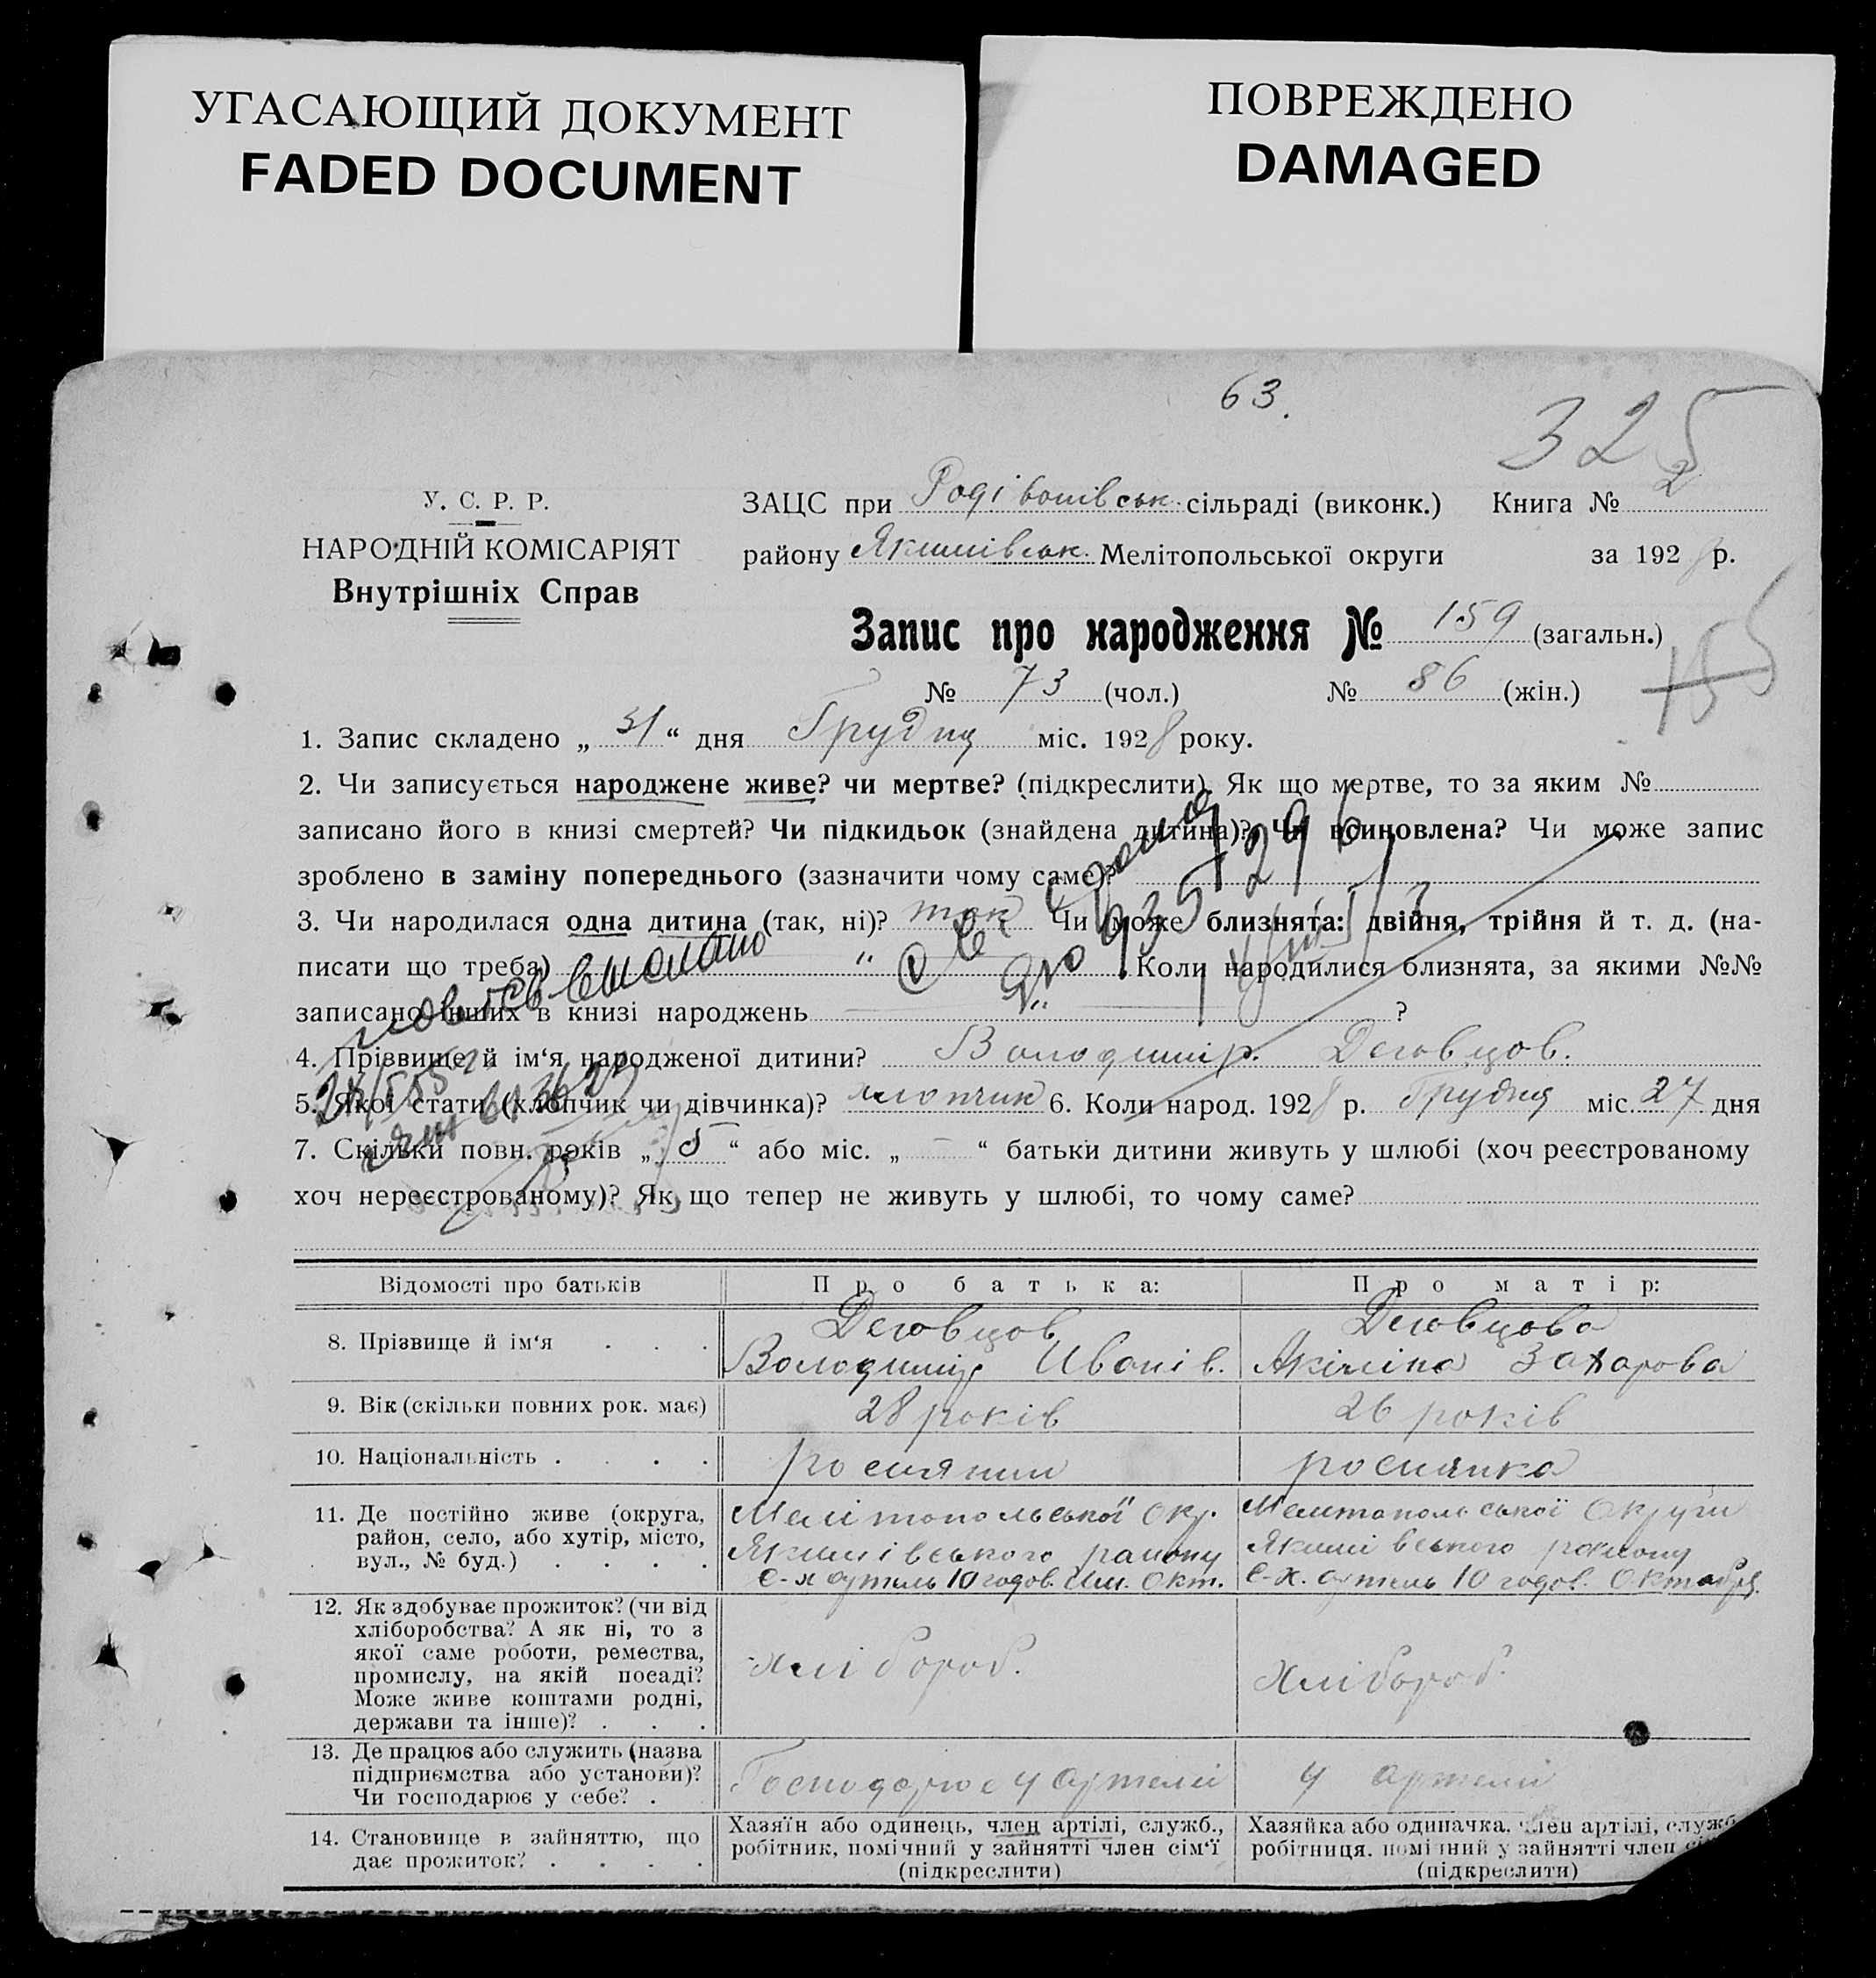 УГАСАЮЩИЙ ДОКУМЕНТ
FADED DOCUMENT
ПОВРЕЖДЕНО
DAMAGED
63.
325
У. С. Р. Р.
НАРОДНІЙ КОМІСАРІЯТ
Внутрішніх Справ
ЗАЦС при Родівонівськ. сільраді (виконк.) Книга № 2
району Якимівськ. Мелітопольської округи за 1928 р.
Запис про народження № 159 (загальн.)
№ 73 (чол.) № 86 (жін.)
155
1. Запис складено „31“ дня Грудня міс. 1928 року.
2. Чи записується народжене живе? чи мертве? (підкреслити). Як що мертве, то за яким №
записано його в книзі смертей? Чи підкидьок (знайдена дитина)? Чи всиновлена? Чи може запис
зроблено в заміну попереднього (зазначити чому саме)?
3. Чи народилася одна дитина (так, ні)? так Чи може близнята: двійня, трійня й т. д. (на-
писати що треба) „ Коли народилися близнята, за якими №№
записано інших в книзі народжень ?
4. Прізвище й ім‘я народженої дитини? Володимір. Деговцов.
5. Якої стати (хлопчик чи дівчинка)? хлопчик 6. Коли народ. 1928 р. Грудня міс. 27 дня
7. Скільки повн. років „5“ або міс. „–“ батьки дитини живуть у шлюбі (хоч реєстрованому
хоч нереєстрованому)? Як що тепер не живуть у шлюбі, то чому саме?
Відомості про батьків Про батька: Про матір:
8. Прізвище й ім‘я . . . Деговцов Володимир Иванів. Деговцова Акіліна Захарова
9. Вік (скільки повних рок. має) 28 років 26 років
10. Національність . . . . росиянин росиянка
11. Де постійно живе (округа, район, село, або хутір, місто, вул., № буд.) . . . .
Мелітопольської Окр. Якимівського району с-х артель 10 годов. им. Окт.
Мелитопольської Округи Якимівського району с-х. артель 10 годов. Октября.
12. Як здобуває прожиток? (чи від
хліборобства? А як ні, то з
якої саме роботи, ремества,
промислу, на якій посаді?
Може живе коштами родні,
держави та інше)? . . .
хлібороб. хлібороб.
13. Де працює або служить (назва
підприємства або установи)?
Чи господарює у себе? .
Господарює у артелі у артелі
14. Становище в зайняттю, що
дає прожиток? . . . .
Хазяїн або одинець, член артілі, служб.,
робітник, помічний у зайнятті член сім‘ї
(підкреслити)
Хазяйка або одиначка, член артілі, служб
робітниця, помічний у зайнятті член
(підкреслити)